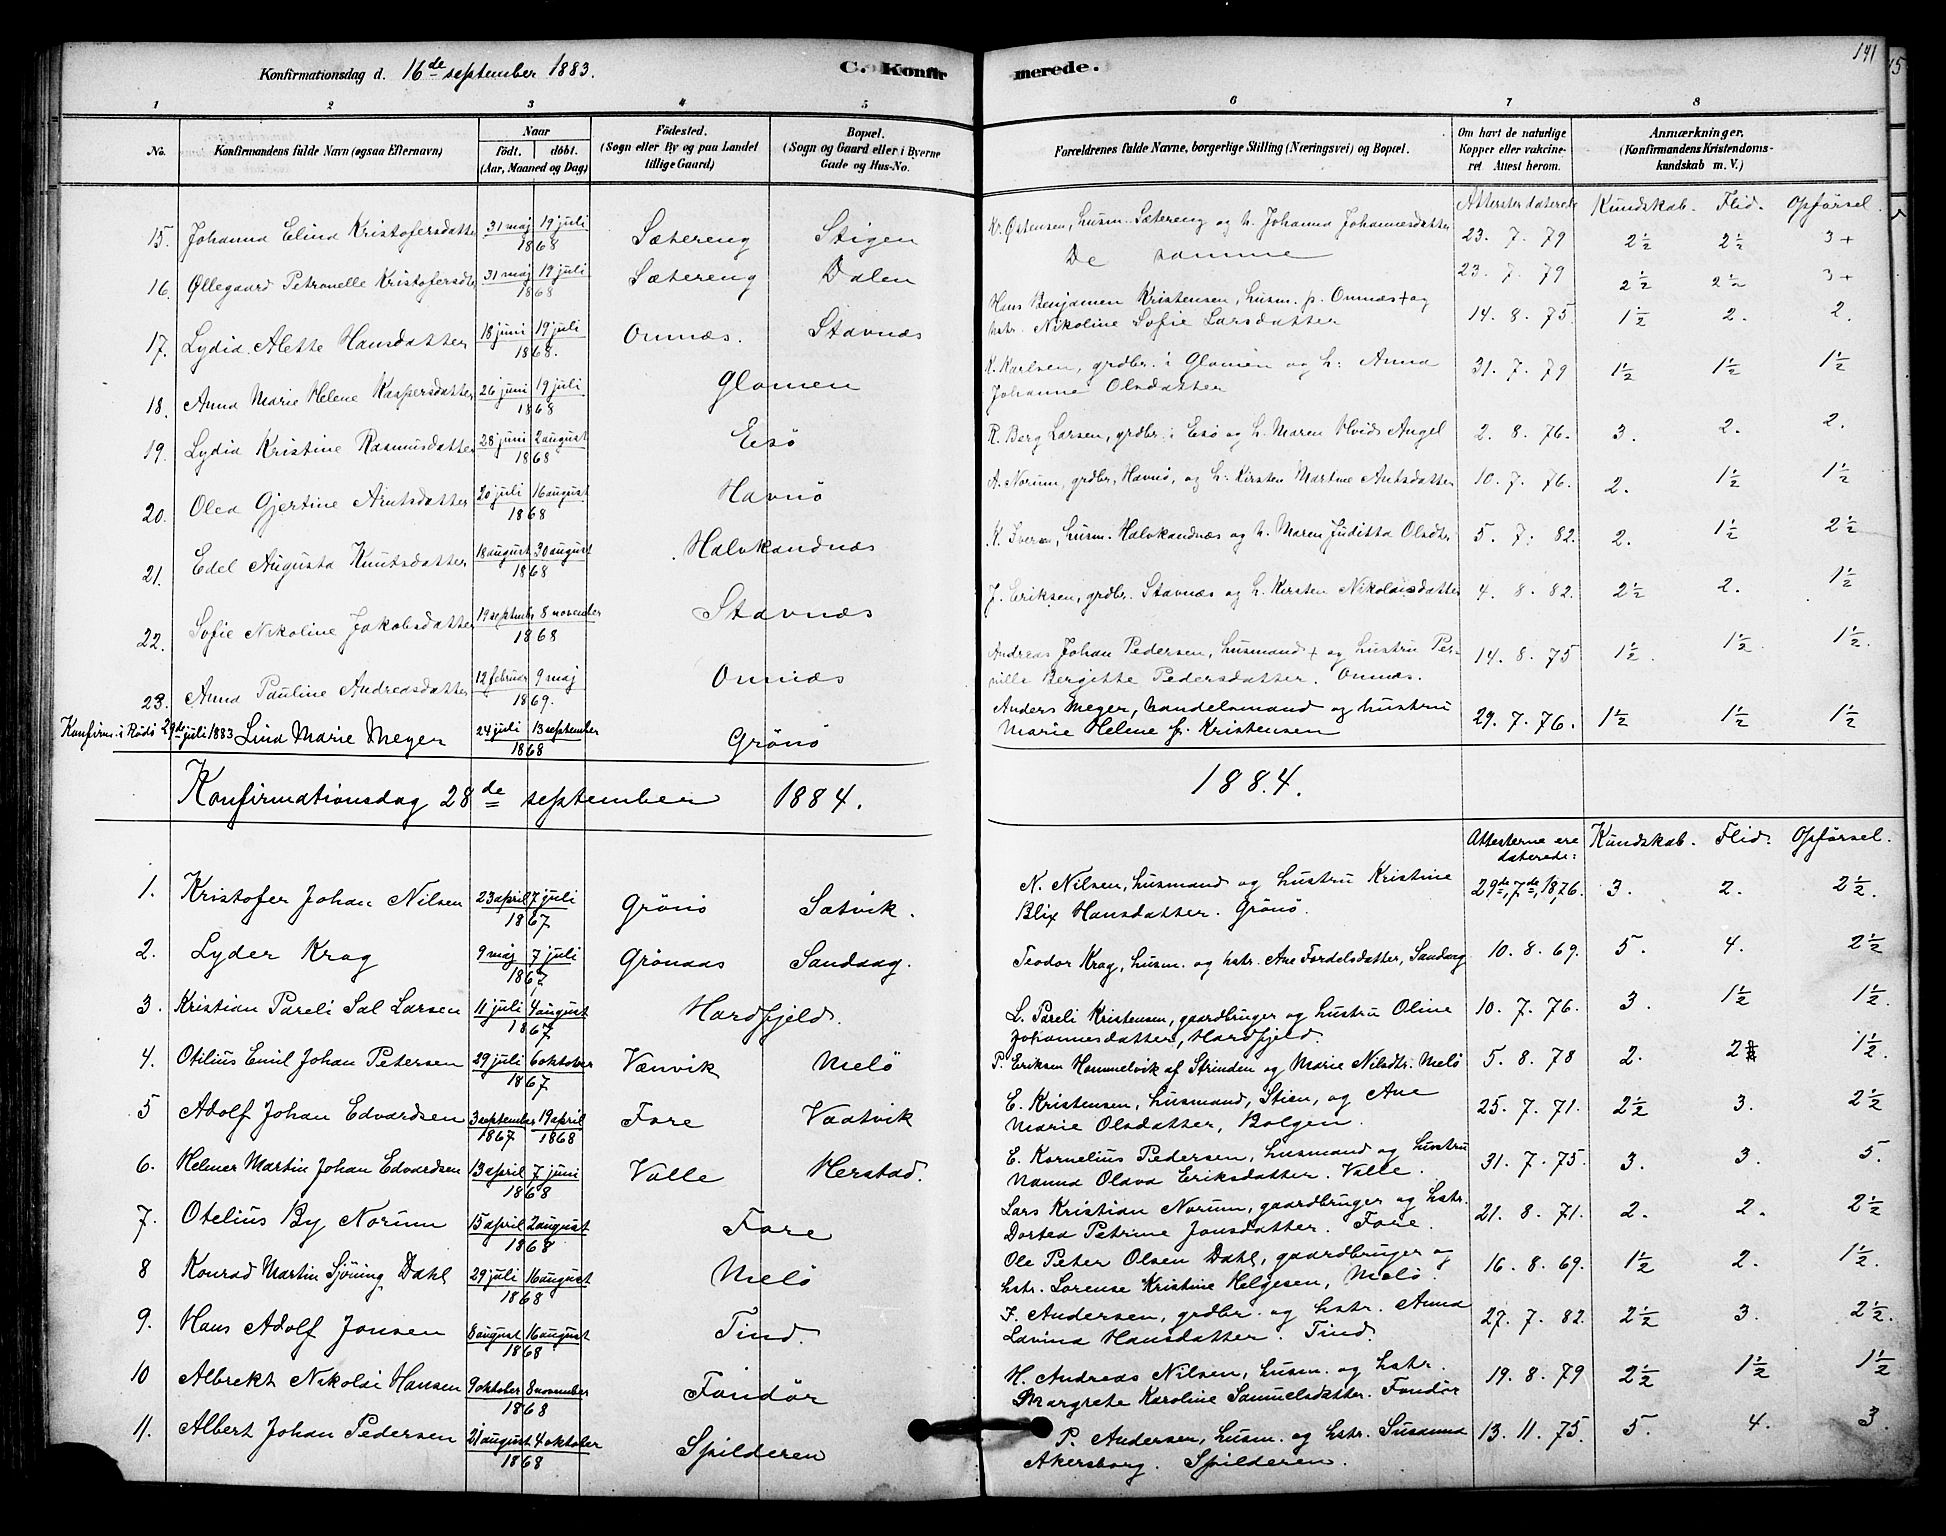 141
Konfirmationsdag d. 16de september 1883. C. Konfirmerede.
1 2 3 4 5 6 7 8
No. Konfirmandens fulde Navn (ogsaa Efternavn) Naar født. døbt. (Aar, Maaned og Dag) Fødested. (Sogn eller By og paa Landet tillige Gaard) Bopæl. (Sogn og Gaard eller i Byerne Gade og Hus-No. Forældrenes fulde Navne, borgerlige Stilling (Næringsvei) og Bopæl. Om havt de naturlige Kopper eller vakcineret. Attest herom. Anmærkninger. (Konfirmandens Kristendomskundskab m. V.)
Attester daterede Kundskab. Flid. Opførsel.
15. Johanna Elina Kristofersdatter 31 maj 19 juli 1868 Sætereng Stigen Kr. Østensen, husm. Sætereng og h. Johanna Johannesdatter 23. 7. 79 2½ 2½ 3+
16. Øllegaard Petronelle Kristofersdtr 31 maj 19 juli 1868 Sætereng Dalen De samme 23. 7. 79 2½ 2½ 3+
17. Lydia Alette Hansdatter 18 juni 19 juli 1868. Onnæs. Stavnæs Hans Benjamen Kristensen, husm. p. Onnæs + og
hstr. Nikoline Sofie Larsdatter 14. 8. 75 1½ 2. 2.
18. Anna Marie Helene Kaspersdatter 26 juni 19 juli 1868 Glomen K. Karlsen, grdbr. i Glomen og h. Anna
Johanne Olsdatter 31. 7. 79 1½ 1½ 1½
19. Lydia Kristine Rasmusdatter 28 juni 2 august 1868 Esø R. Berg Larsen, grdbr. i Esø og h. Maren Hvids Angel 2. 8. 76. 3. 2. 2.
20. Olea Gjertine Arntsdatter 20 juli 16 august 1868 Havnø A. Norum, grdbr. Havnø, og h. Kirsten Martine Antsdatter 10. 7. 76. 2. 1½ 1½
21. Edel Augusta Knutsdatter 18 august 30 august 1868 Halvkandnæs K. Iversen, husm. Halvkandnæs og h. Maren Juditta Olsdtr 5. 7. 82. 2. 1½ 2½
22. Sofie Nikoline Jakobsdatter 19 september 8 november 1868 Stavnæs J. Eriksen, grdbr. Stavnæs og h. Kirsten Nikolaisdatter 4. 8. 82. 2½ 2. 1½
23. Anna Pauline Andreasdatter 12 februar 9 maj 1869. Onnæs Andreas Johan Pedersen, husmand + og hustru Per-
nille Bergitte Pedersdatter. Onnæs. 14. 8. 75 1½. 1½. 1½.
Konfirm. i Rødø 29de juli 1883 Lina Marie Meyer 24 juli 13 september 1868 Grönö Anders Meyer, handelsmand og hustru
Marie Helene f. Kristensen 29. 7. 76. 1½ 1½ 1½
Konfirmationsdag 28de september 1884. 1884.
Attesterne ere daterede: Kundskab. Flid. Opførsel.
1. Kristofer Johan Nilsen 23 april 7 juli 1867 Grönö Satvik. N. Nilsen, husmand og hustru Kristine
Blix Hansdatter. Grönö. 29de, 7de, 1876. 3. 2. 2½.
2. Lyder Krag 9 maj 7 juli 1867 Grönaas Sandaag. Teodor Krag, husm. og hstr. Ane Fordelsdatter, Sandaag 10. 8. 69. 5. 4. 2½
3. Kristian Pareli Sal Larsen 11 juli 4 august 1867 Hardfjeld. L. Pareli Kristensen, gaardbruger og hustru Oline
Johannesdatter, Hardfjeld. 10. 7. 76. 3. 1½ 1½.
4. Otilius Emil Johan Petersen 29 juli 6 oktober 1867 Vænvik Melö P. Eriksen Hommelvik af Strinden og Marie Nilsdtr. Melö 5. 8. 78 2. 2 1½.
5 Adolf Johan Edvardsen 3 september 1867 19 april 1868 Fore Vaatvik E. Kristensen, husmand, Stien, og Ane
Marie Olsdatter, Bolgen. 25. 7. 71. 2½ 3. 2½
6. Helmer Martin Johan Edvardsen 13 april 7 juni 1868 Valle Herstad. E. Kornelius Pedersen, husmand og hustru
Nanna Olava Eriksdatter. Valle. 31. 7. 75. 3. 3. 5.
7. Otelius By Norum 15 april 2 august 1868 Fore Lars Kristian Norum, gaardbruger og hstr.
Dortea Petrine Jonsdatter. Fore. 21. 8. 71. 2. 2. 2½
8 Konrad Martin Sjöning Dahl 29 juli 16 august 1868 Melö Ole Peter Olsen Dahl, gaardbruger og
hstr. Lorense Kristine Helgesen, Melö. 16. 8. 69. 1½ 2. 1½.
9. Hans Adolf Jonsen 8 august 16 august 1868 Tind. J. Andersen, grdbr. og hstr. Anna
Lavina Hansdatter. Tind. 27. 7. 82. 2½ 3. 2½.
10 Albrekt Nikolai Hansen 9 oktober 8 november 1868 Fondör H. Andreas Nilsen, husm. og hstr.
Margrete Karoline Samuelsdatter. Fondör 19. 8. 79 2½ 1½ 1½
11. Albert Johan Pedersen 21 august 4 oktober 1868 Spilderen P. Andersen, husm. og hstr. Susanna
Akersborg. Spilderen. 13. 11. 75. 5. 4. 3.